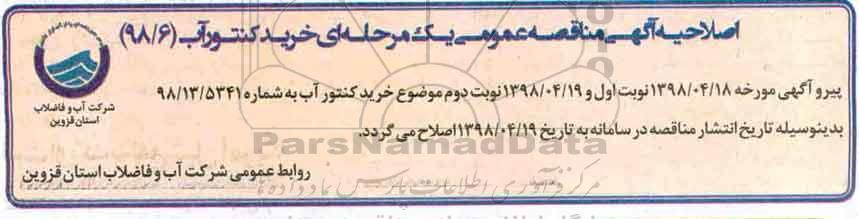 اصلاحیه آگهی مناقصه عمومی یک مرحله‌ای خرید کنتور آب (۹۸/۶)
پیرو آگهی مورخه ۱۳۹۸/۰۴/۱۸ نوبت اول و ۱۳۹۸/۰۴/۱۹ نوبت دوم موضوع خرید کنتور آب به شماره ۹۸/۱۳/۵۳۴۱
بدینوسیله تاریخ انتشار مناقصه در سامانه به تاریخ ۱۳۹۸/۰۴/۱۹ اصلاح می گردد.
روابط عمومی شرکت آب و فاضلاب استان قزوین
شرکت آب و فاضلاب
استان قزوین
ParsNamadData
مرکز فرآوری اطلاعات پارس نماد داده ها